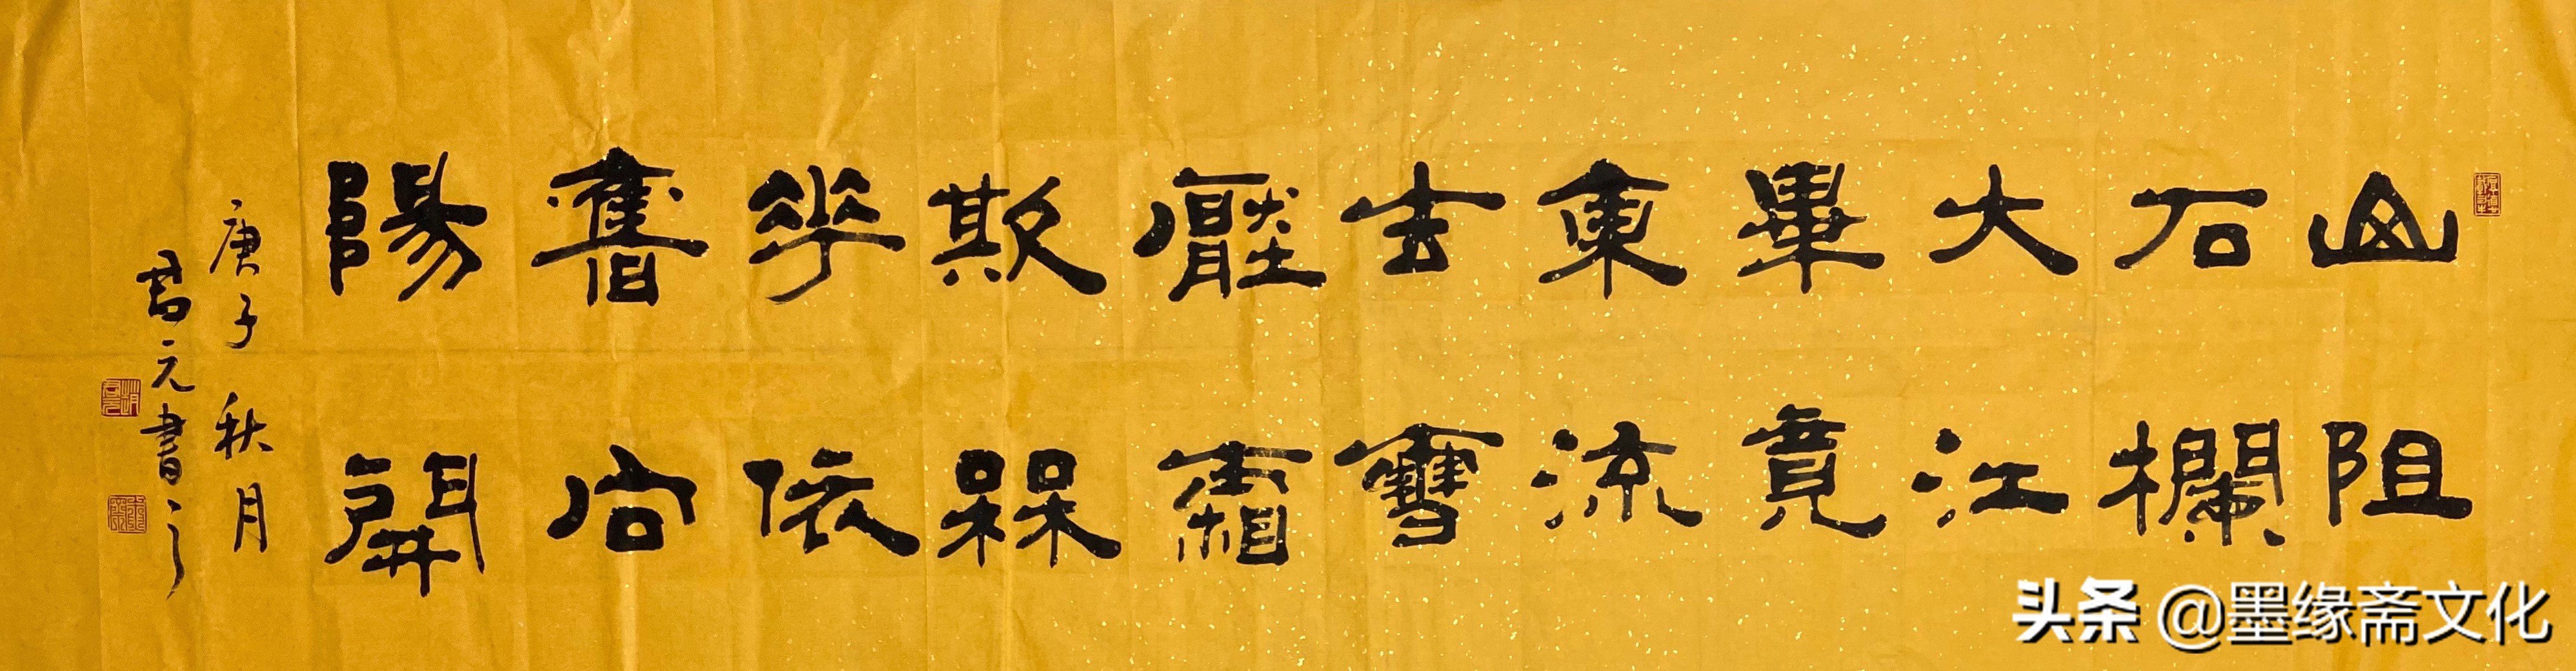 山阻
石欄
大江
畢竟
東流
去雪
壓霜
欺槑
華依
舊向
陽開
庚子秋月
君元書之
头条 @墨缘斋文化